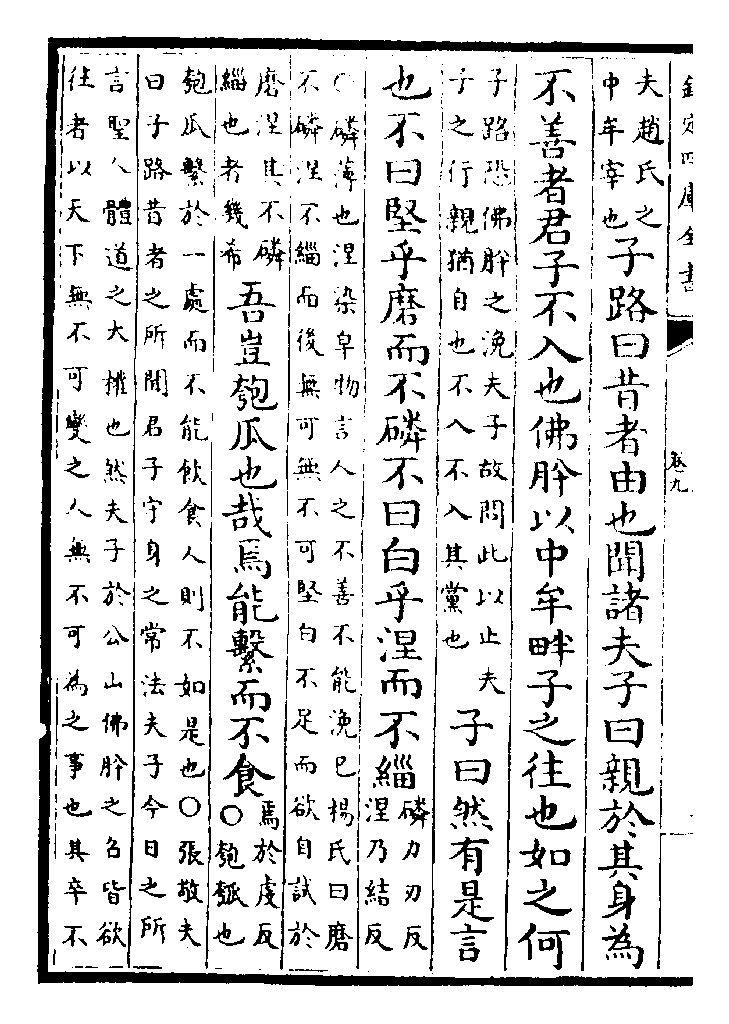 欽定四庫全書
卷九
夫趙氏之
中牟宰也
子路曰昔者由也聞諸夫子曰親於其身為
不善者君子不入也佛肸以中牟畔子之往也如之何
子路恐佛肸之浼夫子故問此以止夫
子之行親猶自也不入不入其黨也
子曰然有是言
也不曰堅乎磨而不磷不曰白乎涅而不緇
磷力刃反
涅乃結反
○磷薄也涅染皁物言人之不善不能浼已楊氏曰磨
不磷涅不緇而後無可無不可堅白不足而欲自試於
磨涅其不磷
緇也者幾希
吾豈匏瓜也哉焉能繫而不食
焉於虔反
○匏瓠也
匏瓜繫於一處而不能飲食人則不如是也○張敬夫
曰子路昔者之所聞君子守身之常法夫子今日之所
言聖人體道之大權也然夫子於公山佛肸之召皆欲
往者以天下無不可變之人無不可為之事也其卒不